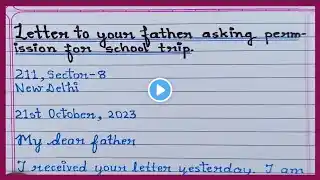 Letter to your father asking perm-
ission for school trip.
211, Sector-8
New Delhi
21st October, 2023
My dear father
I received your letter yesterday. I am